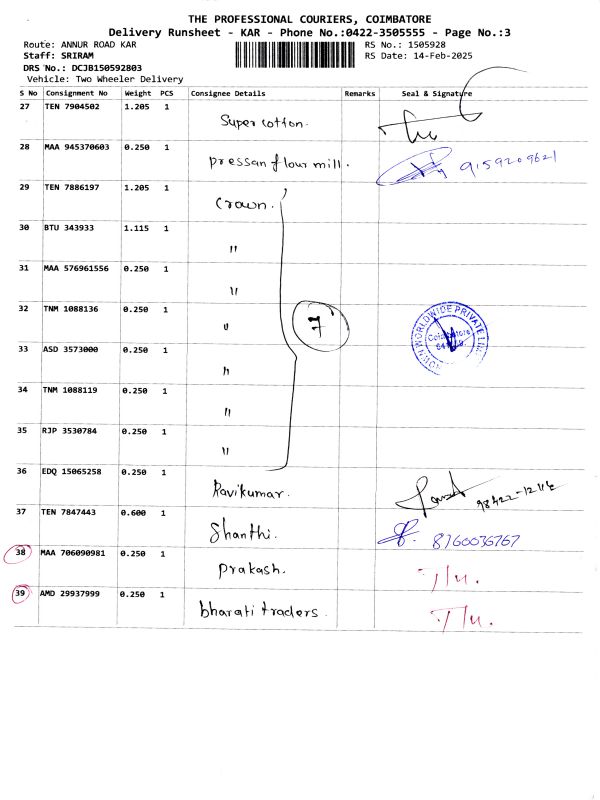 THE PROFESSIONAL COURIERS, COIMBATORE
Delivery Runsheet - KAR - Phone No.:0422-3505555 - Page No.:3
Route: ANNUR ROAD KAR RS No.: 1505928
Staff: SRIRAM RS Date: 14-Feb-2025
DRS No.: DCJB150592803
Vehicle: Two Wheeler Delivery
S No Consignment No Weight PCS Consignee Details Remarks Seal & Signature
27 TEN 7904502 1.205 1 Super cotton.
28 MAA 945370603 0.250 1 pressan flour mill. 9159209621
29 TEN 7886197 1.205 1 Crown.
30 BTU 343933 1.115 1 "
31 MAA 576961556 0.250 1 "
32 TNM 1088136 0.250 1 " 7
33 ASD 3573000 0.250 1 "
34 TNM 1088119 0.250 1 "
35 RJP 3530784 0.250 1 "
36 EDQ 15065258 0.250 1 Ravikumar.
37 TEN 7847443 0.600 1 Shanthi. 8760036767
38 MAA 706090981 0.250 1 Prakash.
39 AMD 29937999 0.250 1 bharati traders.
WORLDWIDE PRIVATE
Coimbatore